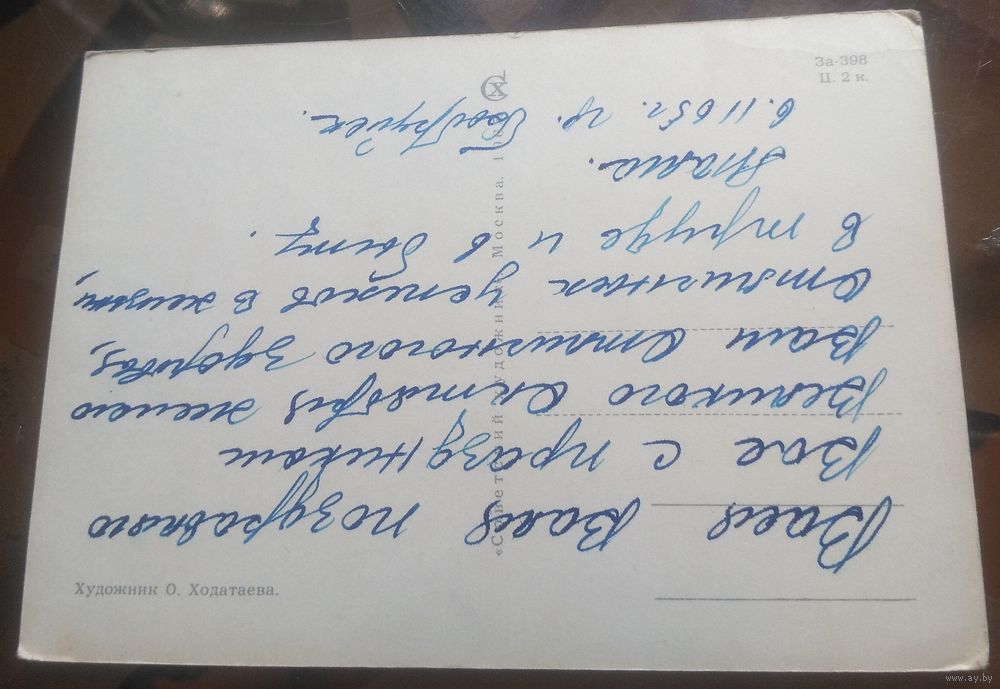 Вася Валя поздравляю
Вас с праздником
Великого Октября желаю
Вам отличного здоровья,
отличных успехов в жизни,
в труде и в быту.
6.11 65 г. гр. Бобруйск.
За-398
Ц. 2 к.
«Советский художник». Москва.
Художник О. Ходатаева.
www.ay.by